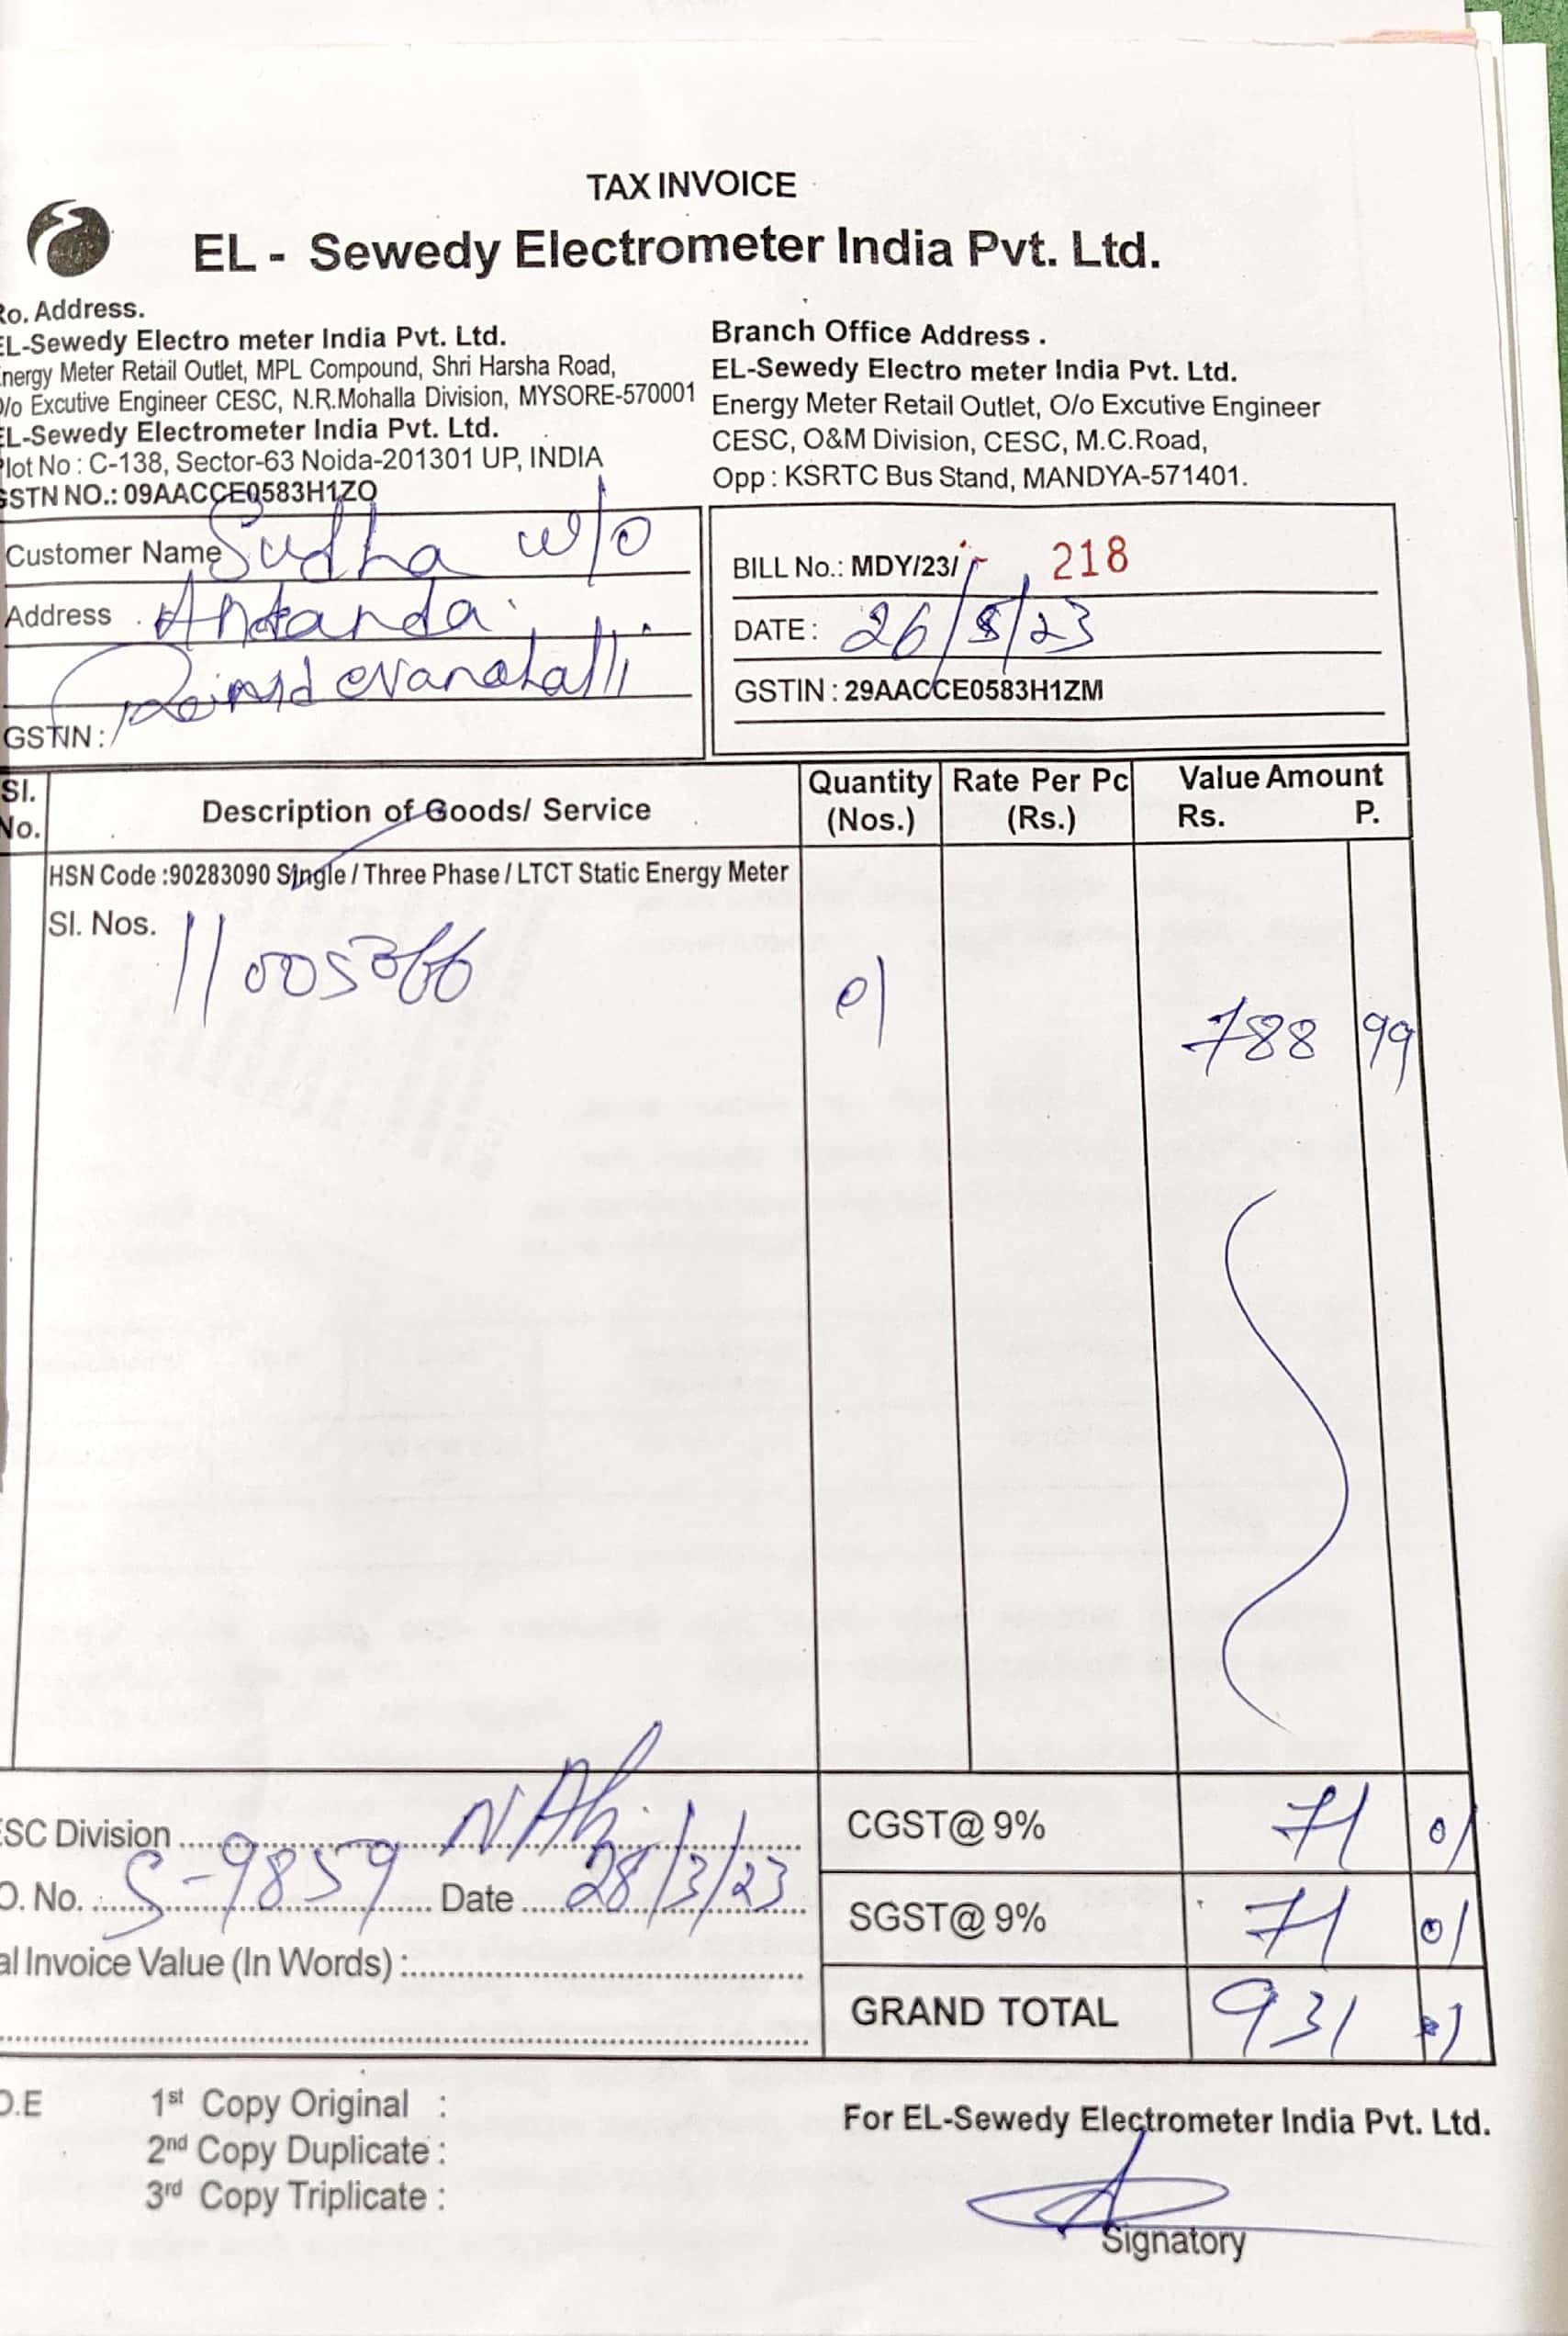 TAX INVOICE
EL - Sewedy Electrometer India Pvt. Ltd.
Ro. Address.
EL-Sewedy Electro meter India Pvt. Ltd.
Energy Meter Retail Outlet, MPL Compound, Shri Harsha Road,
O/o Excutive Engineer CESC, N.R.Mohalla Division, MYSORE-570001
EL-Sewedy Electrometer India Pvt. Ltd.
Plot No : C-138, Sector-63 Noida-201301 UP, INDIA
GSTN NO.: 09AACCE0583H1ZO
Branch Office Address .
EL-Sewedy Electro meter India Pvt. Ltd.
Energy Meter Retail Outlet, O/o Excutive Engineer
CESC, O&M Division, CESC, M.C.Road,
Opp : KSRTC Bus Stand, MANDYA-571401.
Customer Name Sudha w/o
Address
GSTIN :
BILL No.: MDY/23/ - 218
DATE : 26/5/23
GSTIN : 29AACCE0583H1ZM
Sl. No. Description of Goods/ Service Quantity (Nos.) Rate Per Pc (Rs.) Value Amount Rs. P.
HSN Code :90283090 Single / Three Phase / LTCT Static Energy Meter
Sl. Nos. 11005366 01 788 99
ESC Division
O. No. S-9859 Date 28/3/23
al Invoice Value (In Words) :
CGST@ 9% 71 01
SGST@ 9% 71 01
GRAND TOTAL 931
O.E 1st Copy Original :
2nd Copy Duplicate :
3rd Copy Triplicate :
For EL-Sewedy Electrometer India Pvt. Ltd.
Signatory